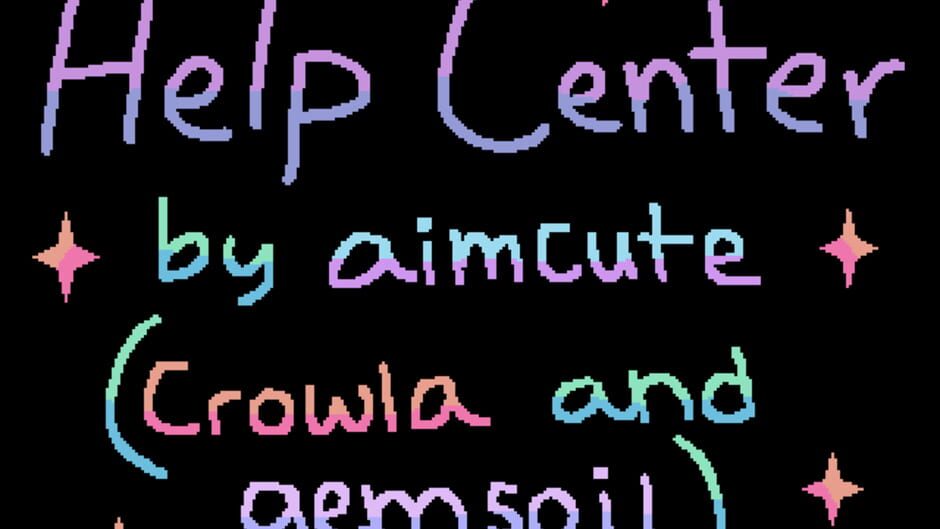 Help Center
by aimcute
(Crowla and
gemsoil)